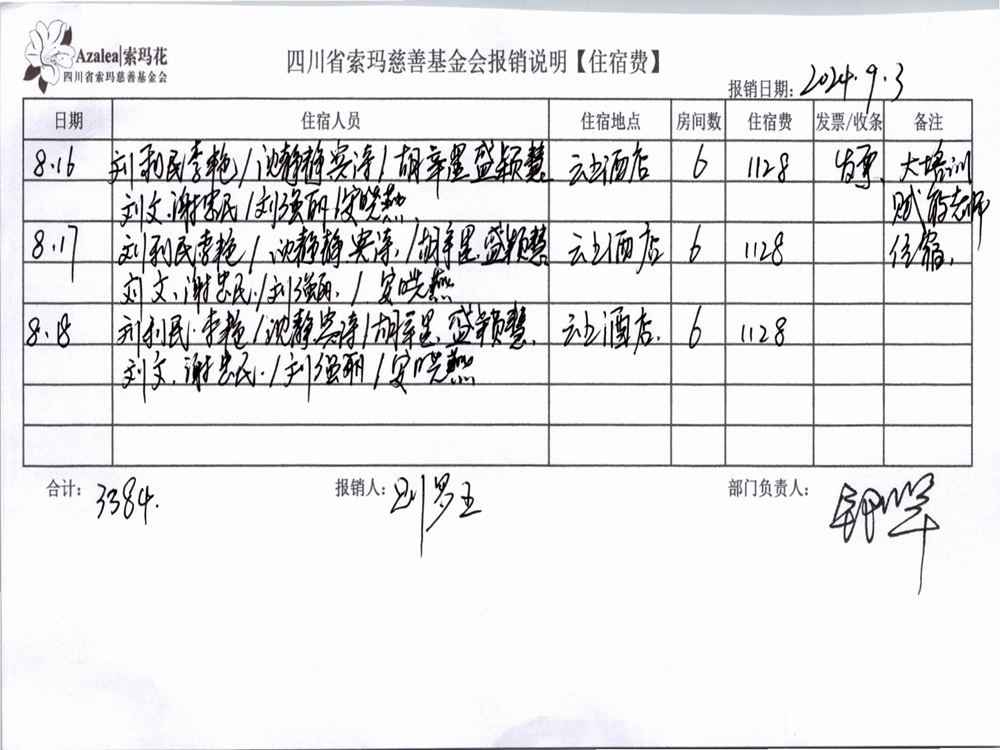 Azalea|索玛花
四川省索玛慈善基金会
四川省索玛慈善基金会报销说明【住宿费】
报销日期：2024.9.3
日期 住宿人员 住宿地点 房间数 住宿费 发票/收条 备注
8.16 刘利民李艳/沈静静宾涛/胡幸星盛颖慧 云上酒店 6 1128 发票 大培训
刘文.谢忠民/刘强丽/安晓燕 赋能老师
8.17 刘利民李艳/沈静静宾涛./胡幸星.盛颖慧 云上酒店 6 1128 住宿.
刘文.谢忠民./刘强丽./安晓燕
8.18 刘利民.李艳/沈静宾涛/胡幸星.盛颖慧. 云上酒店. 6 1128
刘文.谢忠民./刘强丽/安晓燕
合计：3384. 报销人：刘罗玉 部门负责人：